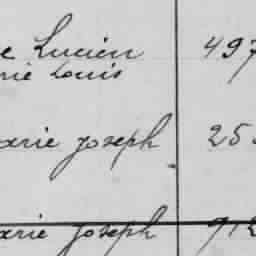 e Lucien 497
rie Louis
arie Joseph 25
arie Joseph 912